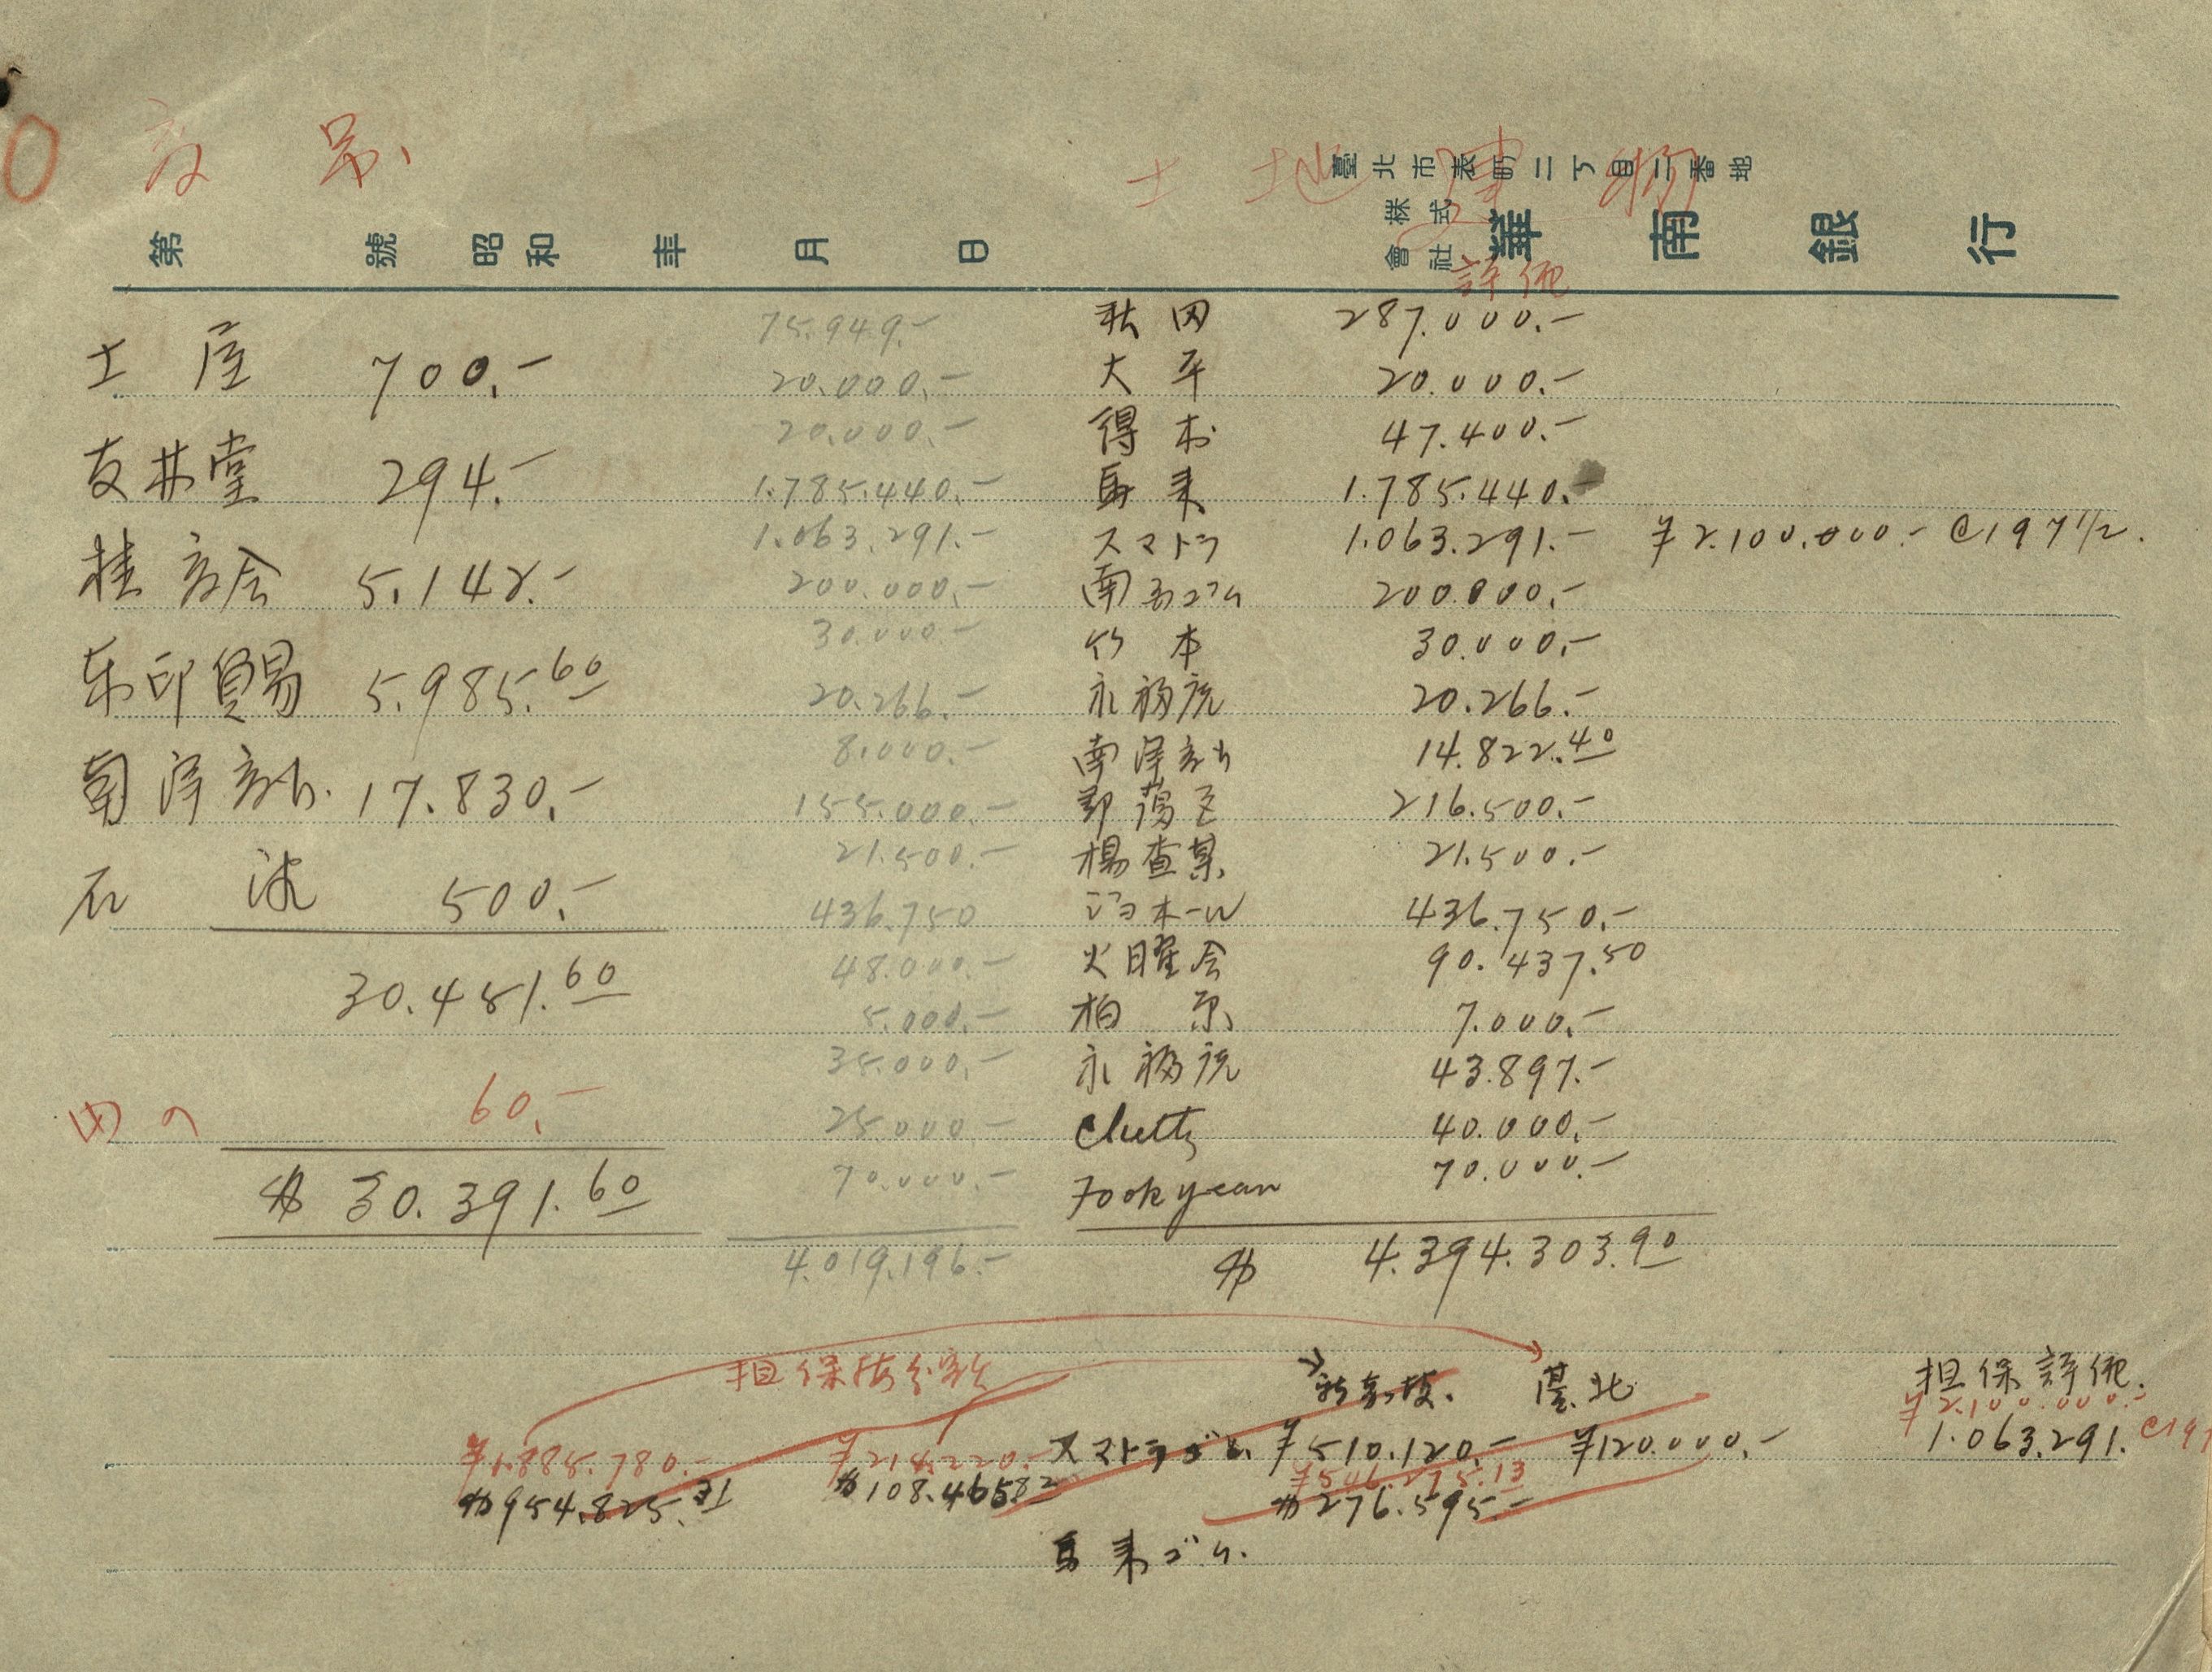 商品
土地建物
臺北市表町二丁目二番地
株式會社 華南銀行
第 號 昭和 年 月 日
評価
土屋 700.-
友井堂 294.-
桂商会 5.142.-
东印貿易 5.985.60
南洋商会 17.830.-
石 500.-
30.451.60
内 60.-
$ 30.391.60
75.949.- 秋田 287.000.-
20.000.- 大平 20.000.-
20.000.- 得本 47.400.-
1.785.440.- 馬来 1.785.440.-
1.063.291.- スマトラ 1.063.291.- ¥2.100.000.- @197 1/2.
200.000.- 南 ゴム 200.000.-
30.000.- 竹本 30.000.-
20.266.- 永福 20.266.-
8.000.- 南洋 14.822.40
155.000.- 216.500.-
21.500.- 楊査某 21.500.-
436.750 ジョホール 436.750.-
48.000.- 火曜会 90.437.50
5.000.- 柏原 7.000.-
35.000.- 永福 43.897.-
25.000.- 40.000.-
70.000.- Fookyean 70.000.-
4.019.196.- $ 4.394.303.90
担保按分額 新嘉坡. 臺北 担保評価.
¥1.885.780.- ¥214.220.- スマトラゴム. ¥510.120.- ¥120.000.- ¥2.100.000.- 1.063.291. @197
$954.825. $108.465.82 $276.595.-
馬来ゴム.